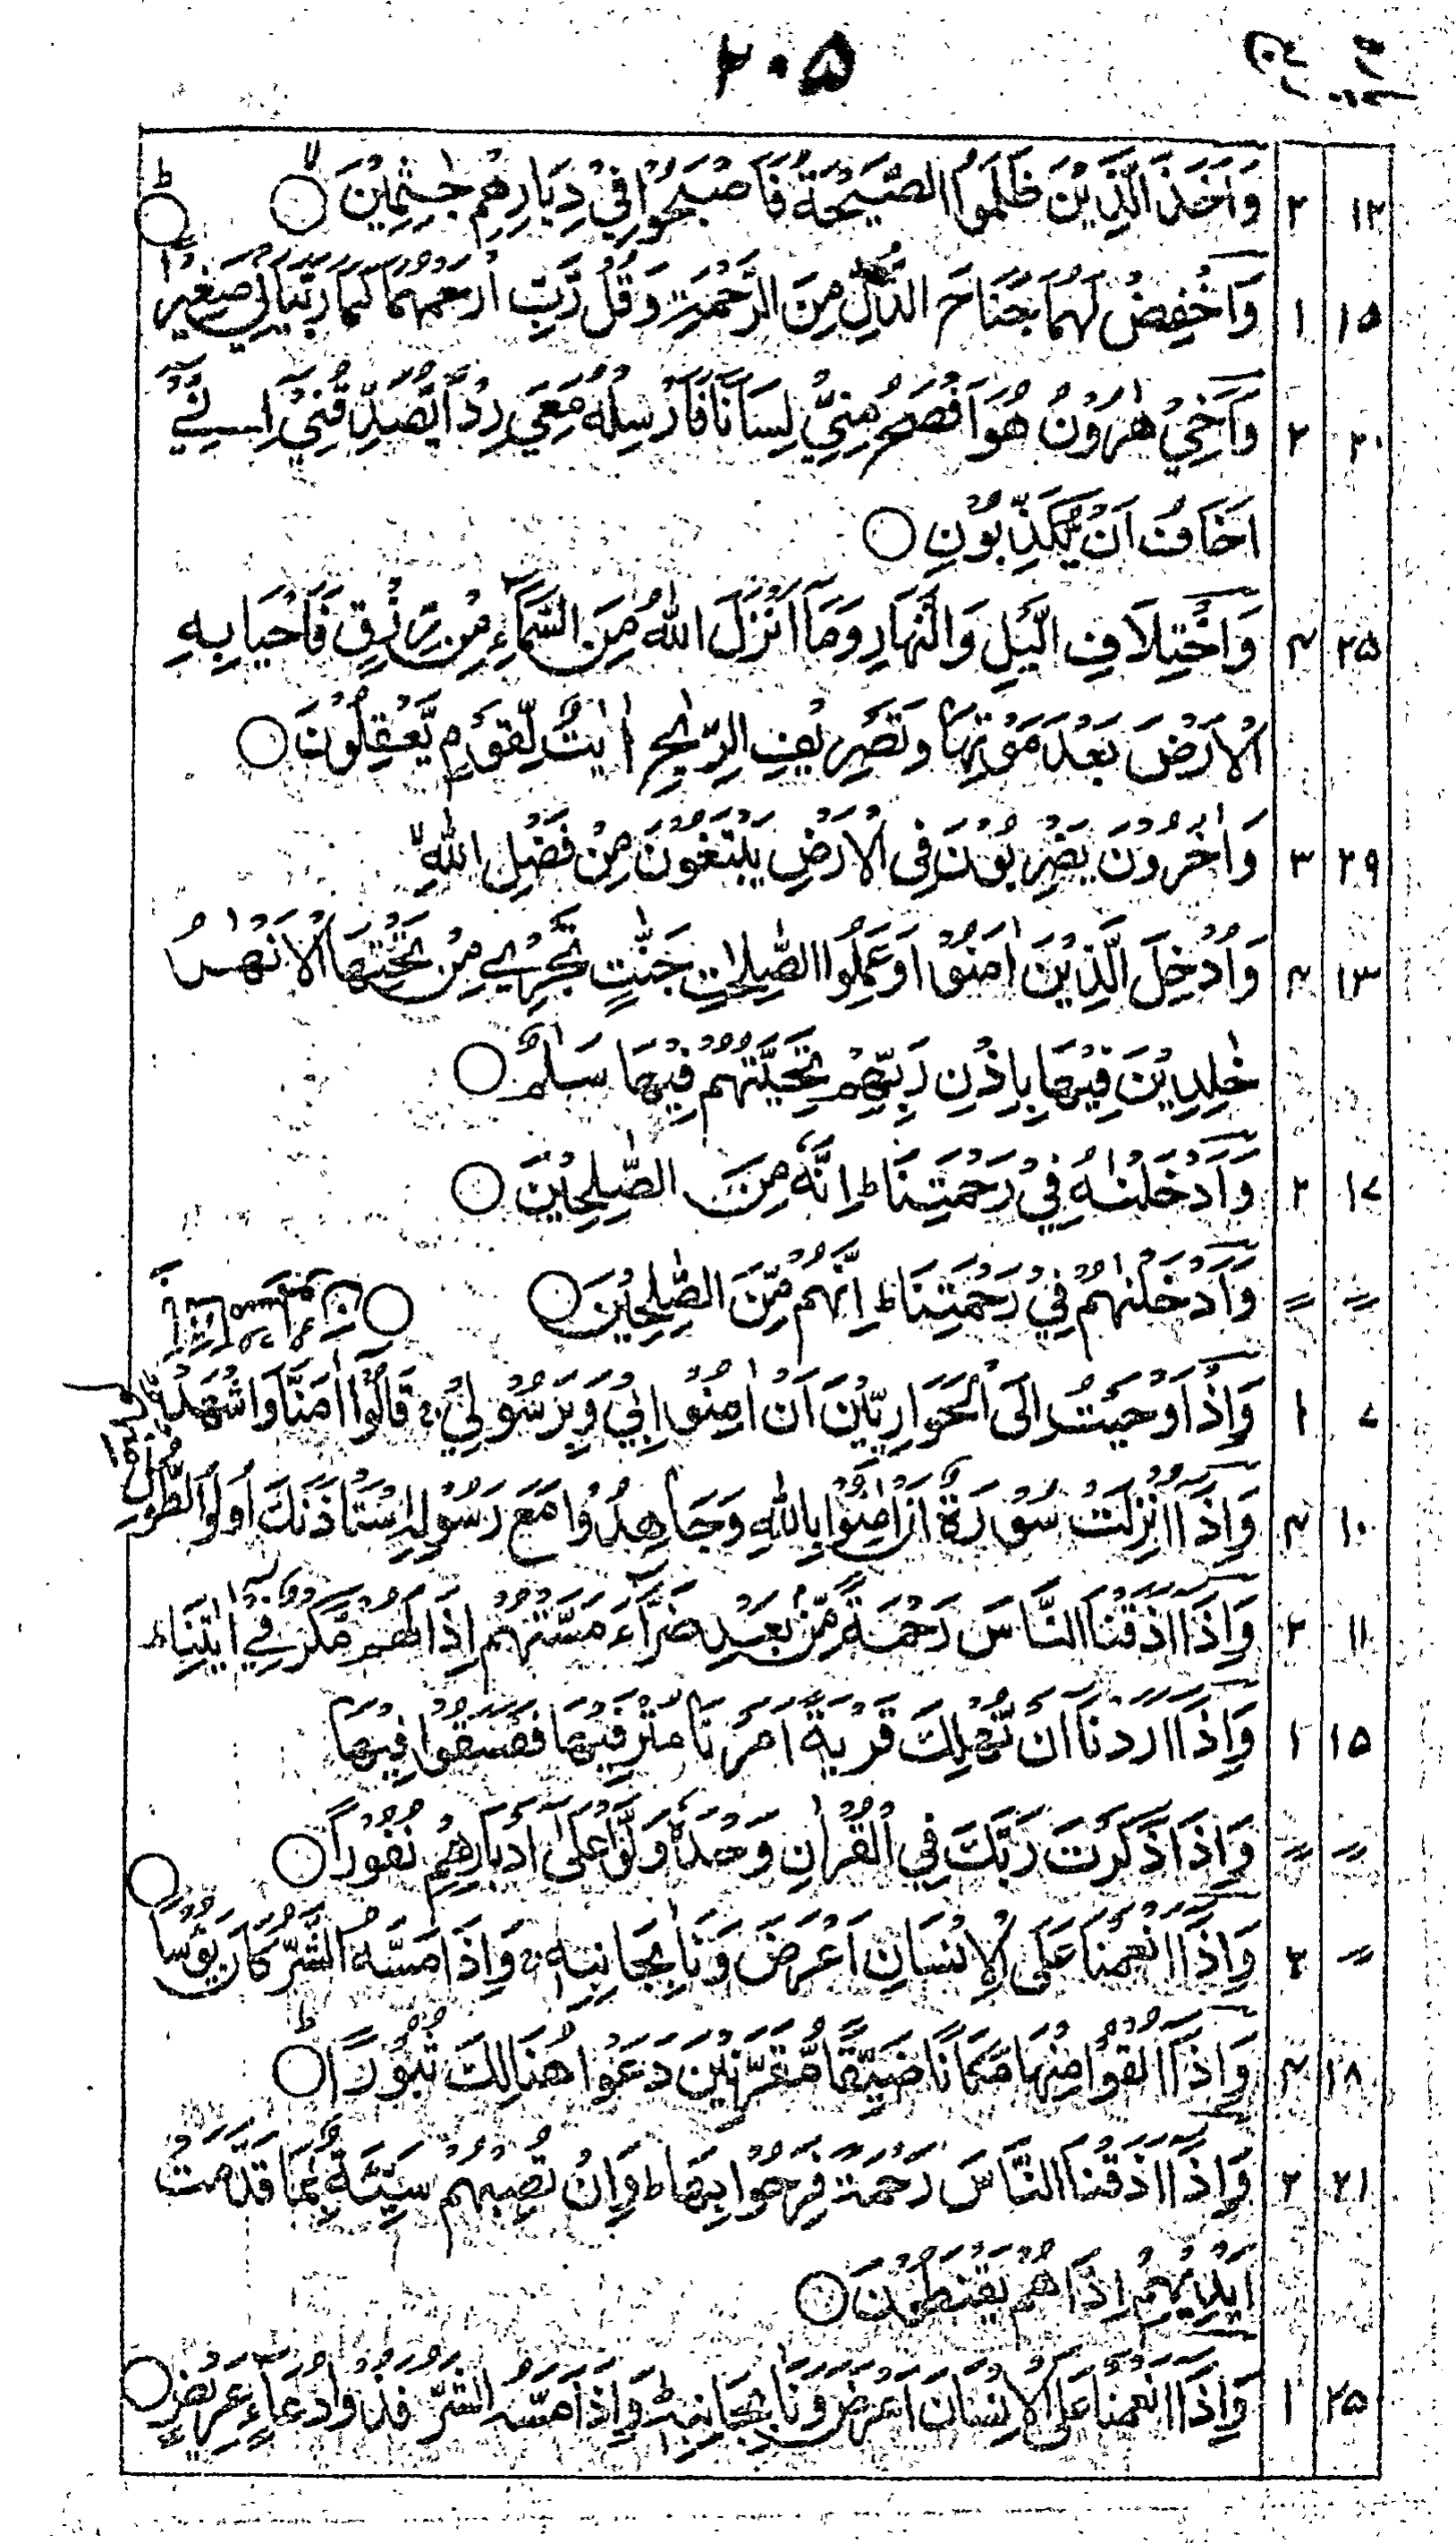 ۲۰۵
۱۲ ۲ وَاَخَذَ الَّذِيْنَ ظَلَمُوا الصَّيْحَةُ فَاَصْبَحُوْا فِيْ دِيَارِهِمْ جٰثِمِيْنَ ○ ○
۱۵ ۱ وَاخْفِضْ لَهُمَا جَنَاحَ الذُّلِّ مِنَ الرَّحْمَةِ وَقُلْ رَّبِّ ارْحَمْهُمَا كَمَا رَبَّيٰنِيْ صَغِيْرًا
۲۰ ۲ وَاَخِيْ هٰرُوْنُ هُوَ اَفْصَحُ مِنِّيْ لِسَانًا فَاَرْسِلْهُ مَعِيَ رِدْاً يُّصَدِّقُنِيْ اِنِّيْ
اَخَافُ اَنْ يُّكَذِّبُوْنِ ○
۲۵ ۴ وَاخْتِلَافِ الَّيْلِ وَالنَّهَارِ وَمَا اَنْزَلَ اللّٰهُ مِنَ السَّمَآءِ مِنْ رِّزْقٍ فَاَحْيَا بِهِ
الْاَرْضَ بَعْدَ مَوْتِهَا وَتَصْرِيْفِ الرِّيٰحِ اٰيٰتٌ لِّقَوْمٍ يَّعْقِلُوْنَ ○
۲۹ ۳ وَاٰخَرُوْنَ يَضْرِبُوْنَ فِى الْاَرْضِ يَبْتَغُوْنَ مِنْ فَضْلِ اللّٰهِ
۱۳ ۴ وَاُدْخِلَ الَّذِيْنَ اٰمَنُوْا وَعَمِلُوا الصّٰلِحٰتِ جَنّٰتٍ تَجْرِيْ مِنْ تَحْتِهَا الْاَنْهٰرُ
خٰلِدِيْنَ فِيْهَا بِاِذْنِ رَبِّهِمْ تَحِيَّتُهُمْ فِيْهَا سَلٰمٌ ○
۱۷ ۲ وَاَدْخَلْنٰهُ فِيْ رَحْمَتِنَا ط اِنَّهٗ مِنَ الصّٰلِحِيْنَ ○
〃 〃 وَاَدْخَلْنٰهُمْ فِيْ رَحْمَتِنَا ط اِنَّهُمْ مِّنَ الصّٰلِحِيْنَ ○ ○
۷ ۱ وَاِذْ اَوْحَيْتُ اِلَى الْحَوَارِيّٖنَ اَنْ اٰمِنُوْا بِيْ وَبِرَسُوْلِيْ ج قَالُوْا اٰمَنَّا وَاشْهَدْ
۱۰ ۴ وَاِذَا اُنْزِلَتْ سُوْرَةٌ اَنْ اٰمِنُوْا بِاللّٰهِ وَجَاهِدُوْا مَعَ رَسُوْلِهِ اسْتَاْذَنَكَ اُولُوا الطَّوْلِ
۱۱ ۲ وَاِذَا اَذَقْنَا النَّاسَ رَحْمَةً مِّنْ بَعْدِ ضَرَّآءَ مَسَّتْهُمْ اِذَا لَهُمْ مَّكْرٌ فِيْ اٰيٰتِنَا ط
۱۵ ۲ وَاِذَا اَرَدْنَا اَنْ نُّهْلِكَ قَرْيَةً اَمَرْنَا مُتْرَفِيْهَا فَفَسَقُوْا فِيْهَا
〃 〃 وَاِذَا ذَكَرْتَ رَبَّكَ فِي الْقُرْاٰنِ وَحْدَهٗ وَلَّوْا عَلٰى اَدْبَارِهِمْ نُفُوْرًا ○ ○
〃 ۳ وَاِذَا اَنْعَمْنَا عَلَى الْاِنْسَانِ اَعْرَضَ وَنَاٰ بِجَانِبِهٖ ج وَاِذَا مَسَّهُ الشَّرُّ كَانَ يَئُوْسًا
۱۸ ۴ وَاِذَا اُلْقُوْا مِنْهَا مَكَانًا ضَيِّقًا مُّقَرَّنِيْنَ دَعَوْا هُنَالِكَ ثُبُوْرًا ○
۲۱ ۲ وَاِذَا اَذَقْنَا النَّاسَ رَحْمَةً فَرِحُوْا بِهَا ط وَاِنْ تُصِبْهُمْ سَيِّئَةٌ بِمَا قَدَّمَتْ
اَيْدِيْهِمْ اِذَا هُمْ يَقْنَطُوْنَ ○
۲۵ ۱ وَاِذَا اَنْعَمْنَا عَلَى الْاِنْسَانِ اَعْرَضَ وَنَاٰ بِجَانِبِهٖ وَاِذَا مَسَّهُ الشَّرُّ فَذُوْ دُعَآءٍ عَرِيْضٍ ○